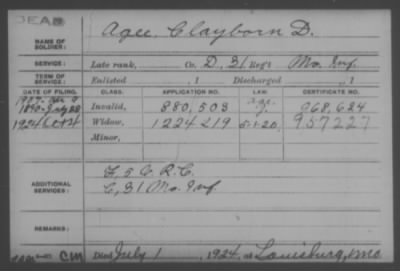 DEAD
Agee, Clayborn D.
NAME OF SOLDIER:
SERVICE: Late rank, Co. D, 31 Reg't Mo. Inf.
TERM OF SERVICE: Enlisted , 1 Discharged , 1
DATE OF FILING. CLASS. APPLICATION NO. LAW. CERTIFICATE NO.
1890 July 28 Invalid, 880,503 age. 968,624
1924 Oct 4 Widow, 1224219 5-1-20, 957227
Minor,
F, 5 C. R. C.
ADDITIONAL SERVICES: C, 31 Mo. Inf
REMARKS:
CM Died July 1 , 1924, at Louisburg, Mo